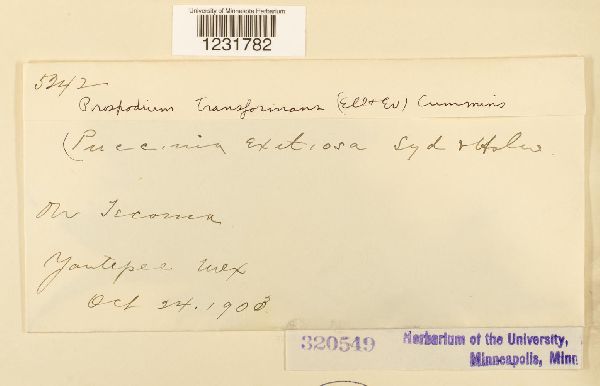 University of Minnesota Herbarium
1231782
5242
Prospodium transformans (Ell + Ev) Cummins
(Puccinia exitiosa Syd & Holw.
On Tecoma
Yautepec Mex
Oct 24. 1903
320549
Herbarium of the University,
Minneapolis, Minn